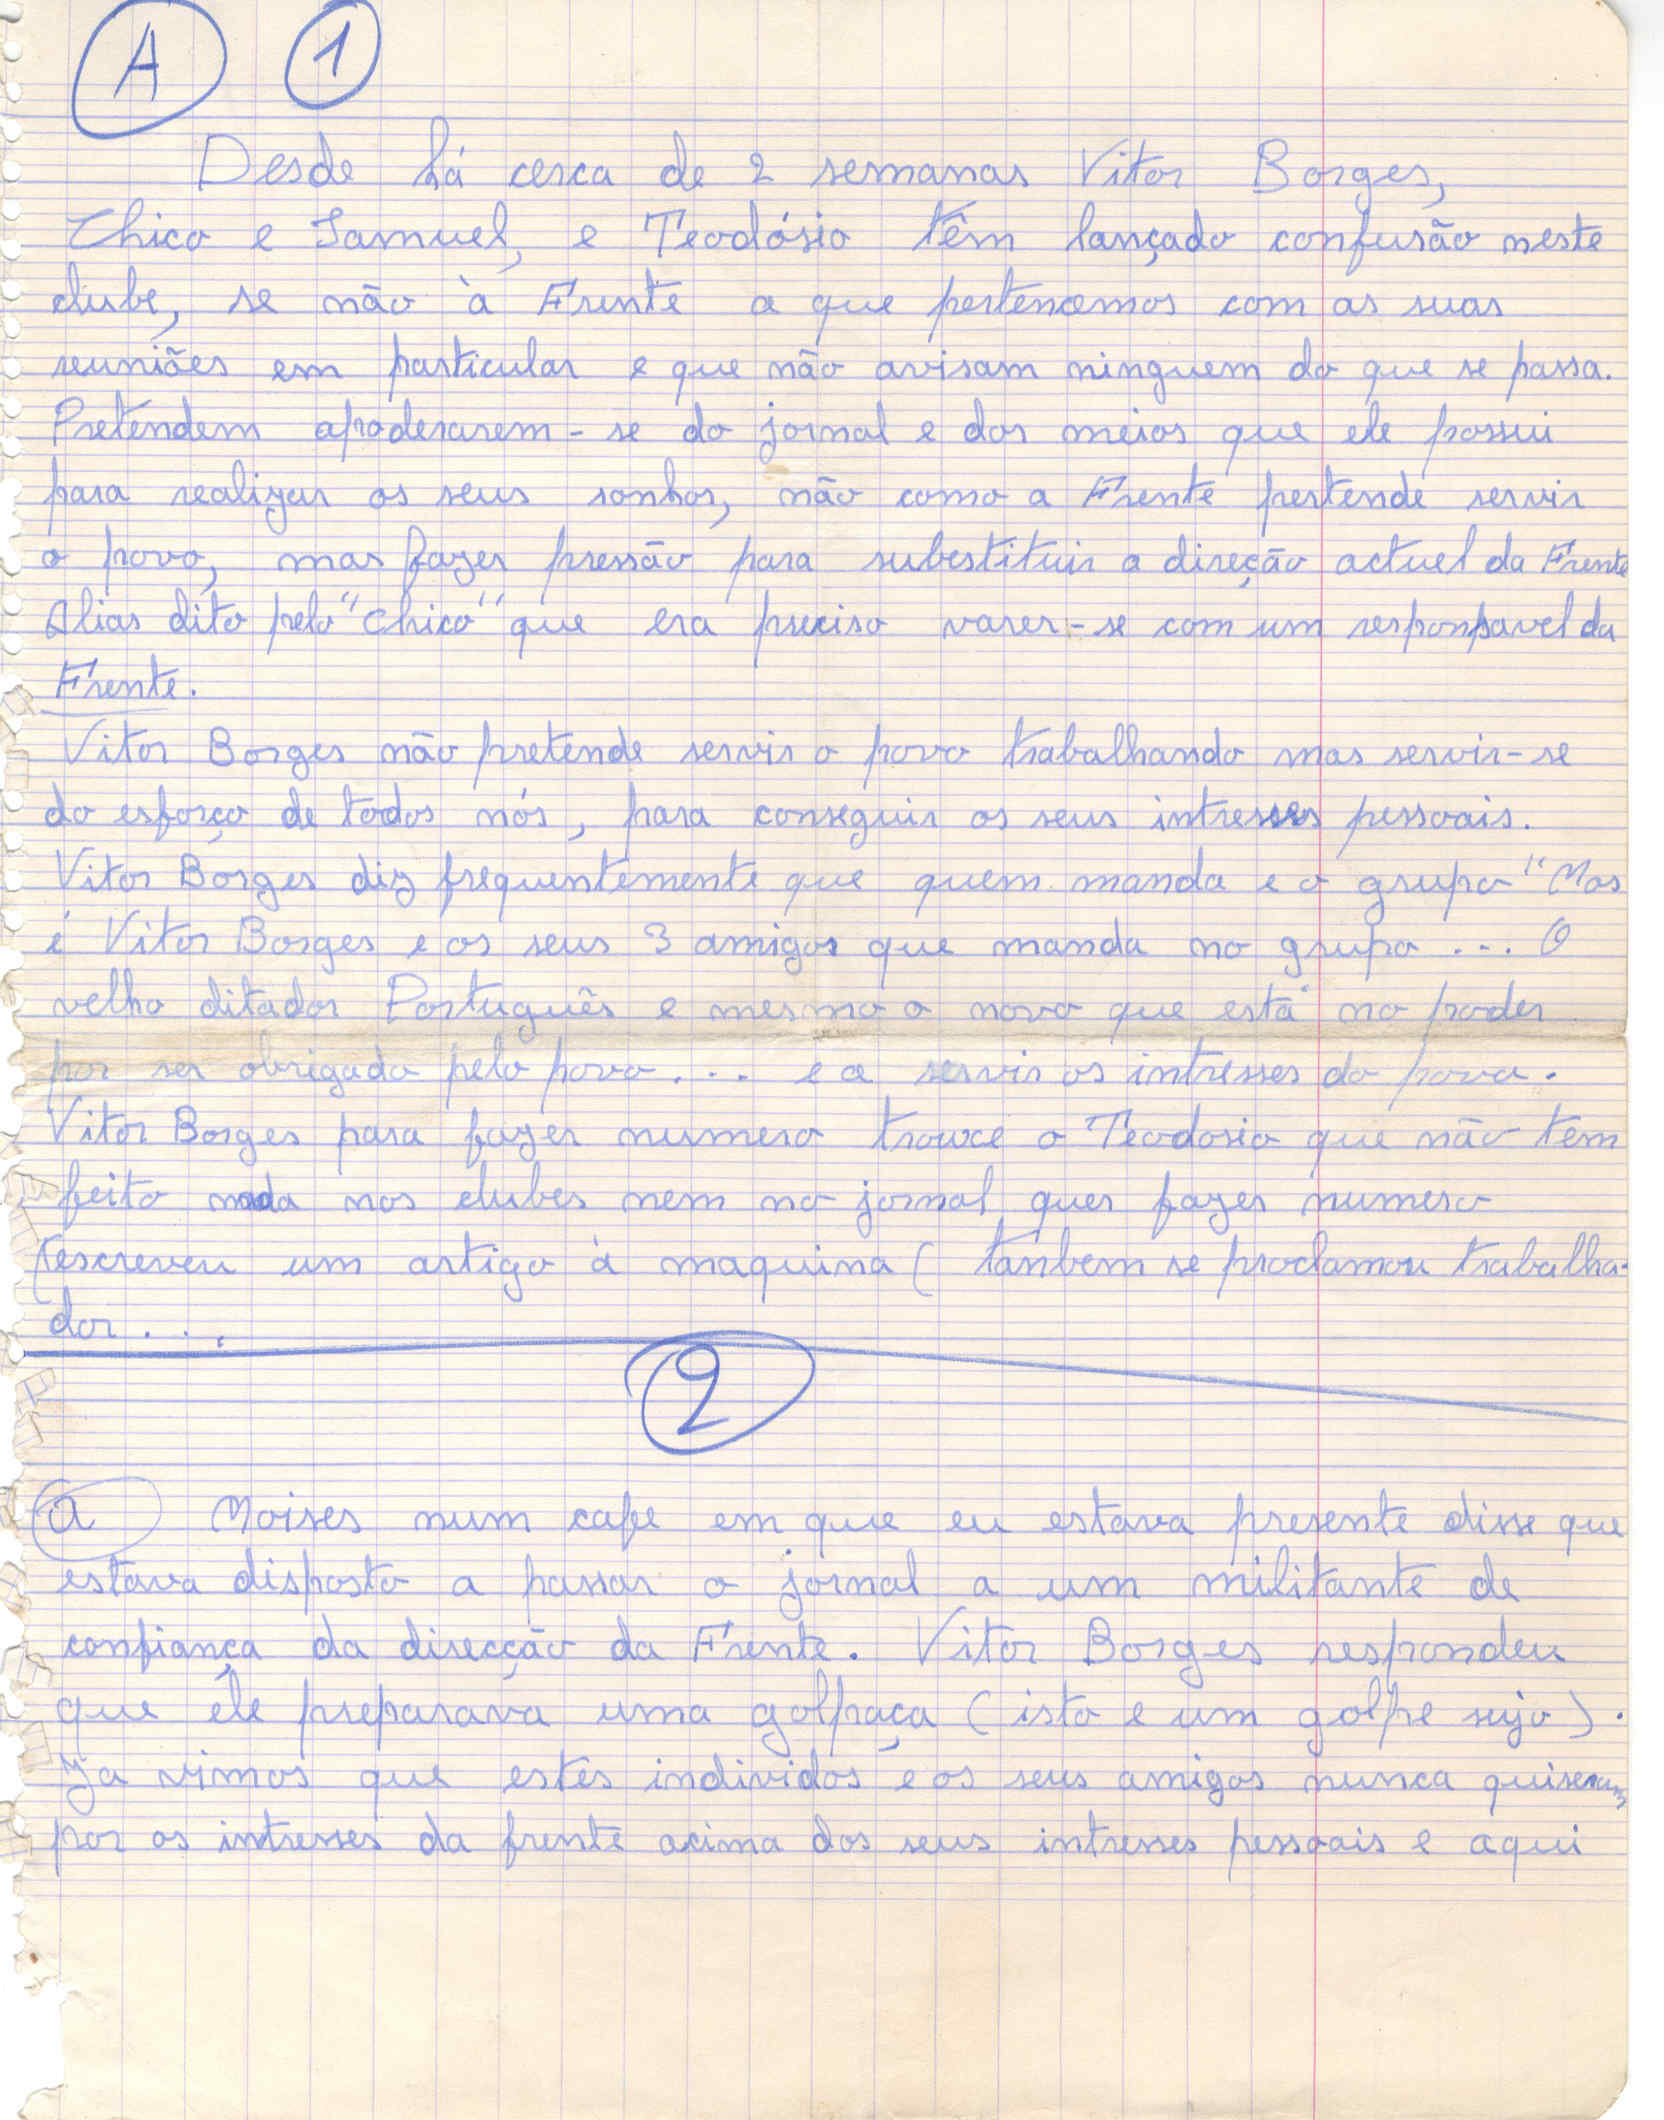 A 1
Desde há cerca de 2 semanas Vitor Borges,
Chico e Samuel, e Teodósio têm lançado confusão neste
clube, se não à Frente a que pertencemos com as suas
reuniões em particular e que não avisam ninguem do que se passa.
Pretendem apoderarem-se do jornal e dos meios que ele possui
para realizar os seus sonhos, não como a Frente pertende servir
o povo, mas fazer pressão para substituir a direção actuel da Frente
Alias dito pelo "Chico" que era preciso varer-se com um responsavel da
Frente.
Vitor Borges não pretende servir o povo trabalhando mas servir-se
do esforço de todos nós, para conseguir os seus intresses pessoais.
Vitor Borges diz frequentemente que quem manda e o grupo "Mas
é Vitor Borges e os seus 3 amigos que manda no grupo .... O
velho ditador Português e mesmo o novo que está no poder
por ser obrigado pelo povo.... e a servir os intresses do povo.
Vitor Borges para fazer numero trouxe o Teodosio que não tem
feito nada nos clubes nem no jornal quer fazer numero
(escreveu um artigo à maquina ( tanbem se proclamou trabalha-
dor . . .
2
a Moises num cafe em que eu estava presente disse que
estava disposto a passar o jornal a um militante de
confiança da direcção da Frente. Vitor Borges respondeu
que ele preparava uma golpaça (isto e um golpe sujo).
Ja vimos que estes individos e os seus amigos nunca quiseram
por os intresses da frente acima dos seus intresses pessoais e aqui